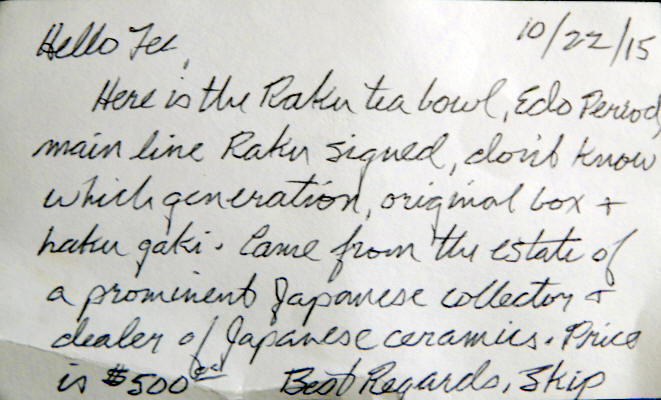 10/22/15
Hello Tec,
Here is the Raku tea bowl, Edo Period,
main line Raku signed, don't know
which generation, original box +
haku gaki. Came from the estate of
a prominent Japanese collector +
dealer of Japanese ceramics. Price
is $500 Best Regards, Skip